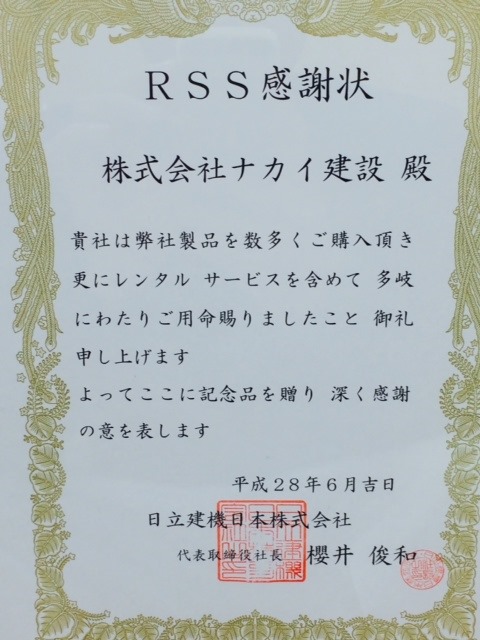 RSS感謝状
株式会社ナカイ建設 殿
貴社は弊社製品を数多くご購入頂き
更にレンタル サービスを含めて 多岐
にわたりご用命賜りましたこと 御礼
申し上げます
よってここに記念品を贈り 深く感謝
の意を表します
平成28年6月吉日
日立建機日本株式会社
代表取締役社長 櫻井 俊和